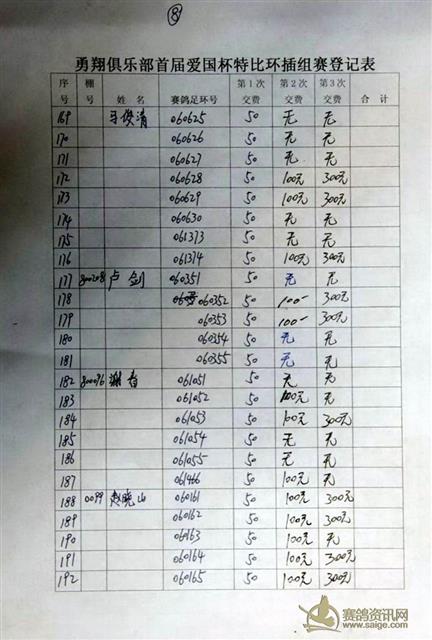 ⑧
勇翔俱乐部首届爱国杯特比环插组赛登记表
序号 棚号 姓名 赛鸽足环号 第1次交费 第2次交费 第3次交费 合计
169 马俊清 060625 50 无 无
170 060626 50 无 无
171 060627 50 无 无
172 060628 50 100元 300元
173 060629 50 100元 300元
174 060630 50 无 无
175 061373 50 无 无
176 061374 50 100元 300元
177 800208 卢剑 060351 50 无 无
178 060352 50 100- 300元
179 060353 50 100- 300元
180 060354 50 无 无
181 060355 50 无 无
182 80096 谢香 061051 50 无 无
183 061052 50 100元 无
184 061053 50 100元 300元
185 061054 50 无 无
186 061055 50 无 无
187 061466 50 100元 无
188 0099 赵晓山 060161 50 100元 300元
189 060162 50 100元 300元
190 060163 50 100元 无
191 060164 50 100元 300元
192 060165 50 100元 300元
赛鸽资讯网
www.saige.com